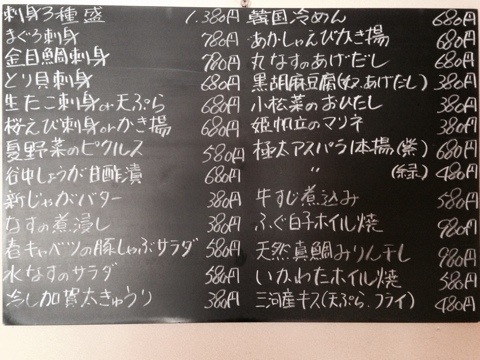 刺身3種盛 1.380円
まぐろ刺身 780円
金目鯛刺身 780円
とり貝刺身 680円
生たこ刺身or天ぷら 680円
桜えび刺身orかき揚 680円
夏野菜のピクルス 580円
谷中しょうが甘酢漬 680円
新じゃがバター 380円
なすの煮浸し 380円
春キャベツの豚しゃぶサラダ 580円
水なすのサラダ 580円
冷し加賀太きゅうり 380円
韓国冷めん 680円
あかしゃえびかき揚 680円
丸なすのあげだし 680円
黒胡麻豆腐(わさ、あげだし) 380円
小松菜のおひたし 380円
姫帆立のマリネ 380円
極太アスパラ1本揚(紫) 680円
〃 (緑) 480円
牛すじ煮込み 580円
ふぐ白子ホイル焼 980円
天然真鯛みりん干し 980円
いかわたホイル焼 580円
三河産キス(天ぷら、フライ) 480円